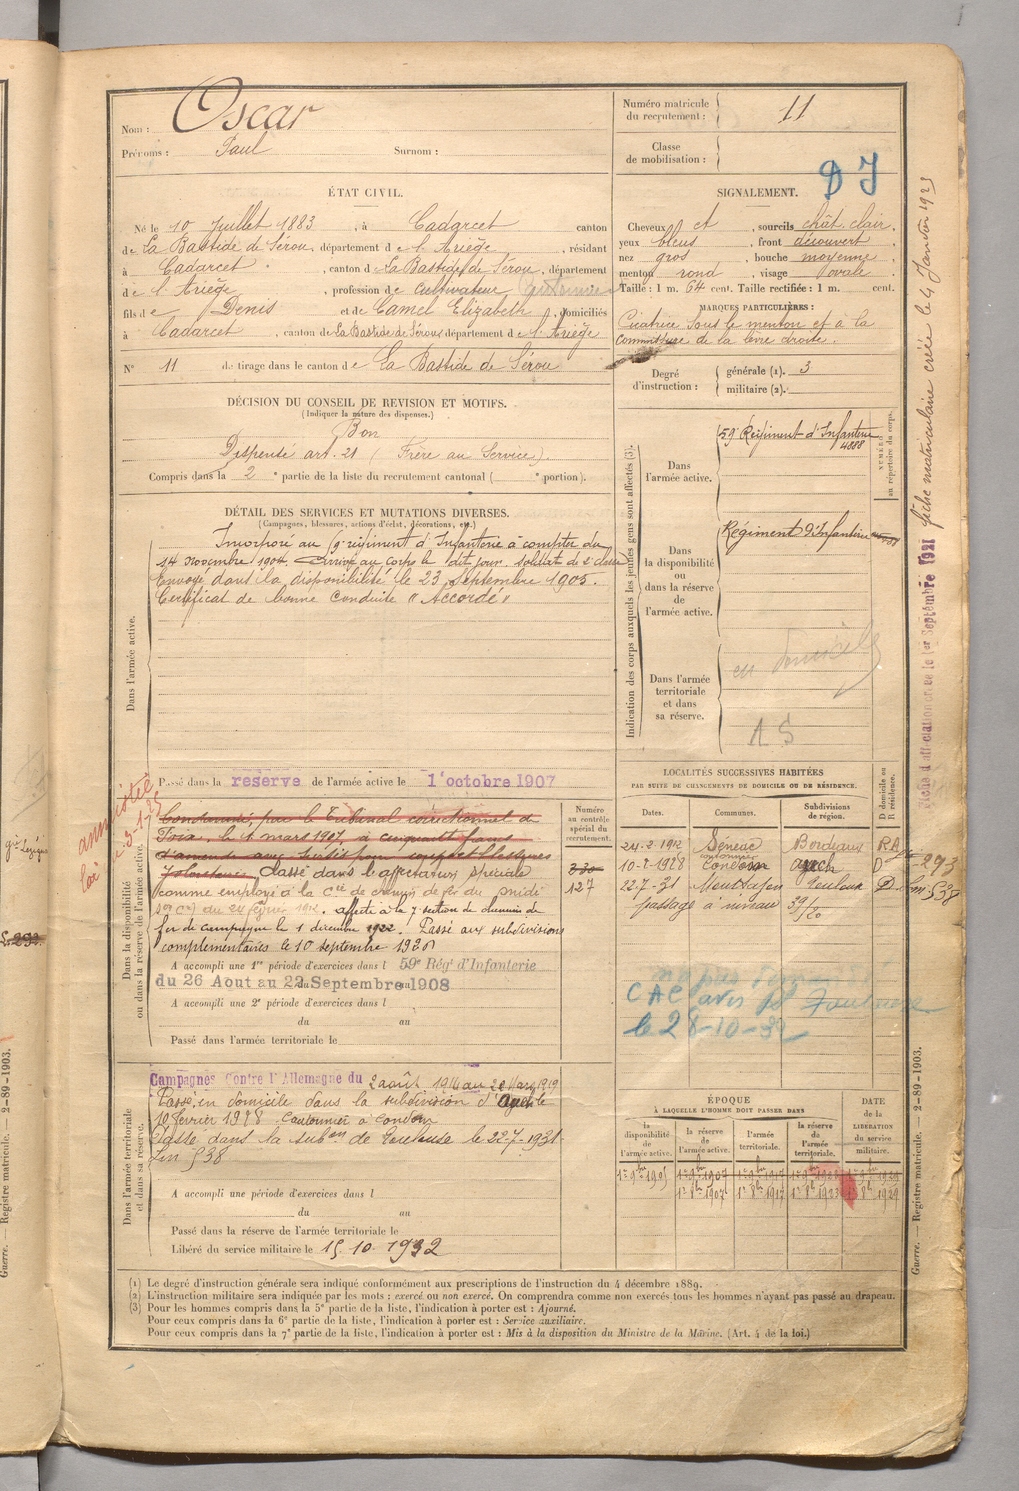 Nom : Oscar
Prénoms : Paul Surnom :
Numéro matricule du recrutement : 11
Classe de mobilisation :
D J
ÉTAT CIVIL.
Né le 10 Juillet 1883, à Cadarcet canton
de La Bastide de Sérou, département de l'Ariège, résidant
à Cadarcet, canton de La Bastide de Sérou, département
de l'Ariège, profession de Cultivateur
fils de Denis et de Camel Elizabeth, domiciliés
à Cadarcet, canton de La Bastide de Sérou, département de l'Ariège
N° 11 de tirage dans le canton de La Bastide de Sérou
SIGNALEMENT.
Cheveux et, sourcils chât. clair,
yeux bleus, front découvert
nez gros, bouche moyenne
menton rond, visage ovale
Taille : 1 m. 64 cent. Taille rectifiée : 1 m. cent.
MARQUES PARTICULIÈRES :
Cicatrice sous le menton et à la
commissure de la lèvre droite.
Degré d'instruction : générale (1). 3
militaire (2).
DÉCISION DU CONSEIL DE REVISION ET MOTIFS.
(Indiquer la nature des dispenses.)
Bon
Dispensé art. 21 (Frère au Service).
Compris dans la 2e partie de la liste du recrutement cantonal ( e portion).
DÉTAIL DES SERVICES ET MUTATIONS DIVERSES.
(Campagnes, blessures, actions d'éclat, décorations, etc.)
Dans l'armée active.
Incorporé au régiment d'Infanterie à compter du
14 novembre 1904. Arrivé au corps le dit jour. soldat de 2e classe
Envoyé dans la disponibilité le 23 septembre 1905.
Certificat de bonne conduite "Accordé"
Passé dans la réserve de l'armée active le 1er octobre 1907
Indication des corps auxquels les jeunes gens sont affectés (3).
Dans l'armée active.
59e Régiment d'Infanterie
4888
NUMÉRO au répertoire du corps.
Dans la disponibilité ou dans la réserve de l'armée active.
Régiment d'Infanterie
Dans l'armée territoriale et dans sa réserve.
en domicile
A S
fiche matriculaire créée le 4 Janvier 1923
Fiche d'affectation créée le 1er Septembre 1921
amnistié
loi 3-1-25
Dans la disponibilité ou dans la réserve de l'armée active.
Condamné par le Tribunal correctionnel de
Foix, le 1 mars 1907, à cinquante francs
d'amende avec sursis pour coups et blessures
volontaires. Classé dans l'affectation spéciale
comme employé à la Cie de chemin de fer du midi
du 24 février 1912. affecté à la 7 section de chemins de
fer de campagne le 1 décembre 1922. Passé aux subdivisions
complémentaires le 10 septembre 1928
A accompli une 1re période d'exercices dans l 59e Régt d'Infanterie
du 26 Aout au 22 Septembre 1908
A accompli une 2e période d'exercices dans l
du au
Passé dans l'armée territoriale le
Numéro au contrôle spécial du recrutement.
330
127
LOCALITÉS SUCCESSIVES HABITÉES
PAR SUITE DE CHANGEMENTS DE DOMICILE OU DE RÉSIDENCE.
Dates. Communes. Subdivisions de région. D domicile ou R résidence.
24-2-1912 Bordeaux R
10-2-1928 cantonnier Condom auch D 293
22-7-31 Toulouse D 538
passage à niveau 39/20
CAC avis de Toulouse
le 28-10-32
Dans l'armée territoriale et dans sa réserve.
Campagnes Contre l'Allemagne du 2 août 1914 au 20 Mars 1919
Passé en domicile dans la subdivision d'Auch le
10 février 1928 Cantonnier à Condom
Passé dans la subon de Toulouse le 22-7-1931
538
A accompli une période d'exercices dans l
du au
Passé dans la réserve de l'armée territoriale le
Libéré du service militaire le 15.10.1932
ÉPOQUE
À LAQUELLE L'HOMME DOIT PASSER DANS
la disponibilité de l'armée active. la réserve de l'armée active. l'armée territoriale. la réserve de l'armée territoriale. DATE de la LIBÉRATION du service militaire.
1er 9bre 1905 1er 9bre 1907 1er 9bre 1917 1er 9bre 1923 1er 9bre 1929
1er 8bre 1907 1er 8bre 1917 1er 8bre 1923 1er 8bre 1929
(1) Le degré d'instruction générale sera indiqué conformément aux prescriptions de l'instruction du 4 décembre 1889.
(2) L'instruction militaire sera indiquée par les mots : exercé ou non exercé. On comprendra comme non exercés tous les hommes n'ayant pas passé au drapeau.
(3) Pour les hommes compris dans la 5e partie de la liste, l'indication à porter est : Ajourné.
Pour ceux compris dans la 6e partie de la liste, l'indication à porter est : Service auxiliaire.
Pour ceux compris dans la 7e partie de la liste, l'indication à porter est : Mis à la disposition du Ministre de la Marine. (Art. 4 de la loi.)
Guerre. — Registre matricule. — 2-89-1903.
Guerre. — Registre matricule. — 2-89-1903.